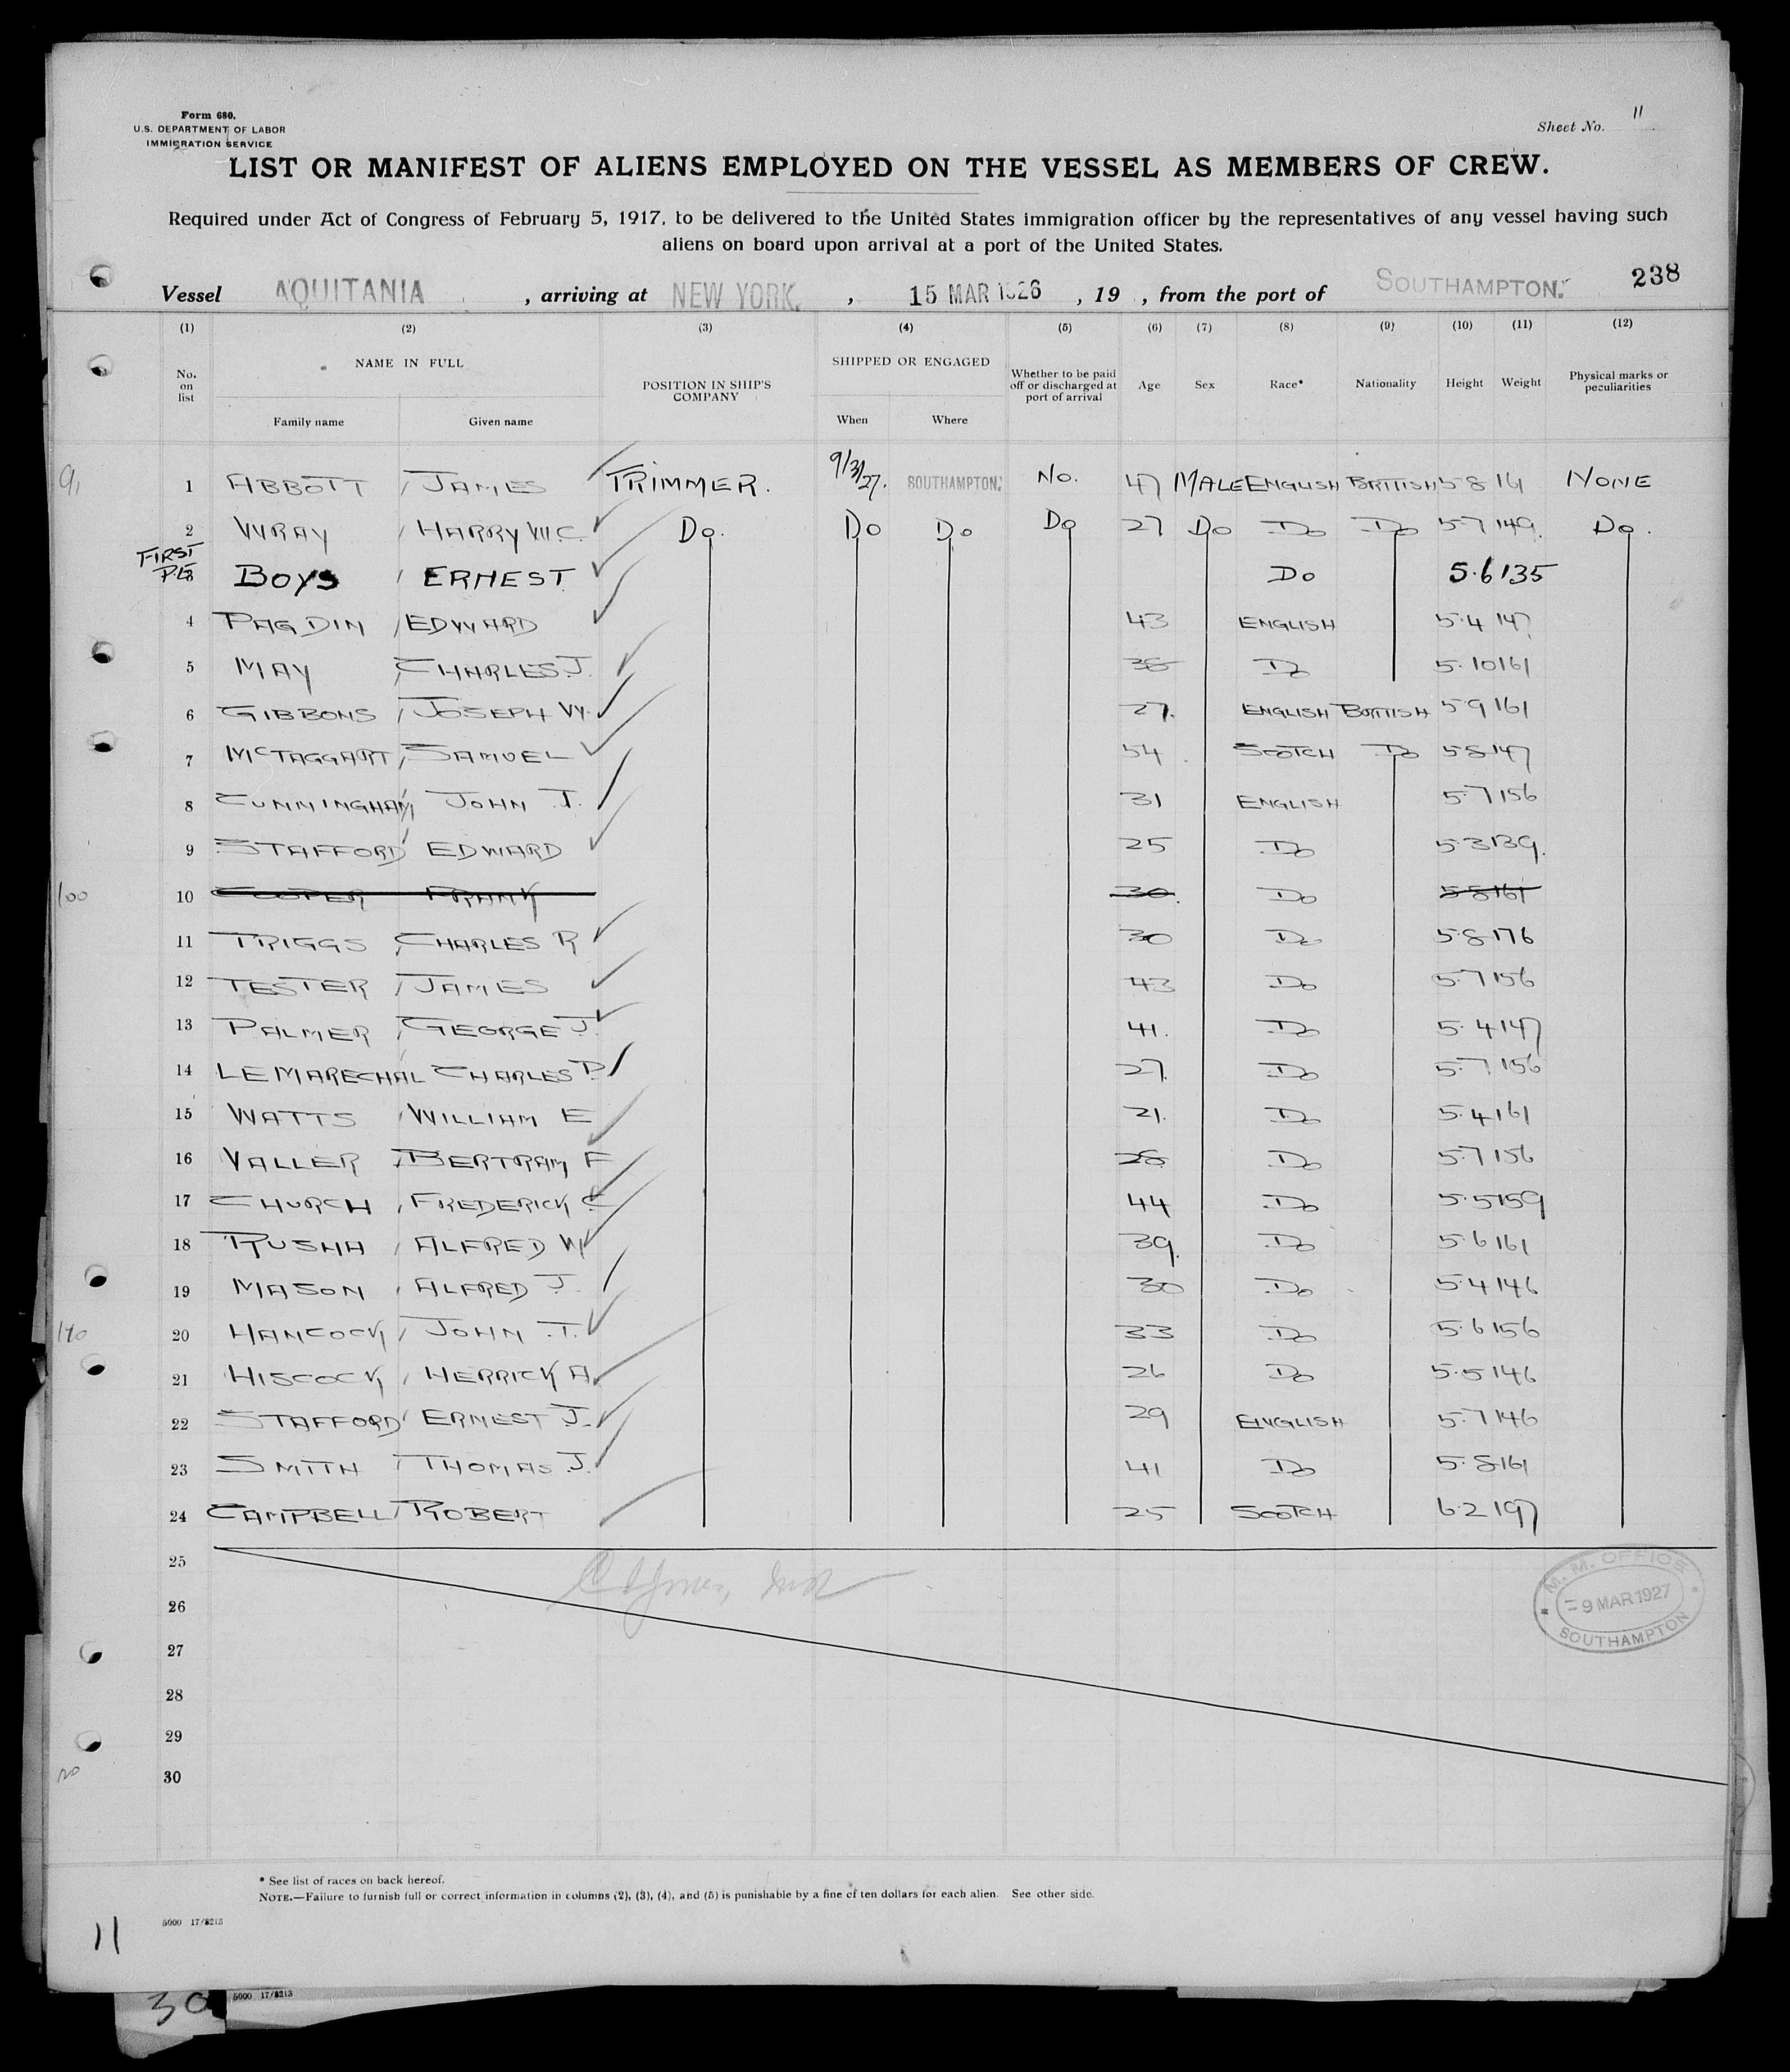 Form 680.
U.S. DEPARTMENT OF LABOR
IMMIGRATION SERVICE
Sheet No. 11
LIST OR MANIFEST OF ALIENS EMPLOYED ON THE VESSEL AS MEMBERS OF CREW.
Required under Act of Congress of February 5, 1917, to be delivered to the United States immigration officer by the representatives of any vessel having such
aliens on board upon arrival at a port of the United States.
Vessel AQUITANIA , arriving at NEW YORK. , 15 MAR 1926 , 19 , from the port of SOUTHAMPTON. 238
(1) (2) (3) (4) (5) (6) (7) (8) (9) (10) (11) (12)
No. on list NAME IN FULL Family name Given name POSITION IN SHIP'S COMPANY SHIPPED OR ENGAGED When Where Whether to be paid off or discharged at port of arrival Age Sex Race* Nationality Height Weight Physical marks or peculiarities
1 ABBOTT JAMES TRIMMER. 9/3/27. SOUTHAMPTON. No. 47 MALE ENGLISH BRITISH 5 8 161 NONE
2 WRAY HARRY W.C. Do. Do Do Do 27 Do Do Do 5.7 149. Do.
FIRST
3 BOYS ERNEST Do 5.6 135
4 PAGDIN EDWARD 43 ENGLISH 5.4 147
5 MAY CHARLES J. 38 Do 5.10 161
6 GIBBONS JOSEPH W. 27. ENGLISH BRITISH 5 9 161
7 McTAGGART SAMUEL 54 SCOTCH Do 5 8 147
8 CUNNINGHAM JOHN T. 31 ENGLISH 5.7 156
9 STAFFORD EDWARD 25 Do 5.3 139.
10 COOPER FRANK 30. Do 5 8 161
11 TRIGGS CHARLES R 30 Do 5.8 176
12 TESTER JAMES 43 Do 5.7 156
13 PALMER GEORGE J. 41. Do 5.4 147
14 LE MARECHAL CHARLES P. 27. Do 5.7 156
15 WATTS WILLIAM E 21. Do 5.4 161
16 VALLER BERTRAM F 28 Do 5.7 156
17 CHURCH FREDERICK C 44 Do 5.5 159
18 RUSHA ALFRED W 39. Do 5.6 161
19 MASON ALFRED J. 30 Do 5.4 146
20 HANCOCK JOHN T. 33 Do 5.6 156
21 HISCOCK HERRICK A. 26 Do 5.5 146
22 STAFFORD ERNEST J. 29 ENGLISH 5.7 146
23 SMITH THOMAS J. 41 Do 5.8 161
24 CAMPBELL ROBERT 25 SCOTCH 6.2 197
25
26
27
28
29
30
M. M. OFFICE
9 MAR 1927
SOUTHAMPTON
91
100
110
120
* See list of races on back hereof.
NOTE.—Failure to furnish full or correct information in columns (2), (3), (4), and (5) is punishable by a fine of ten dollars for each alien. See other side.
5000 17/8213
11
30 5000 17/8213